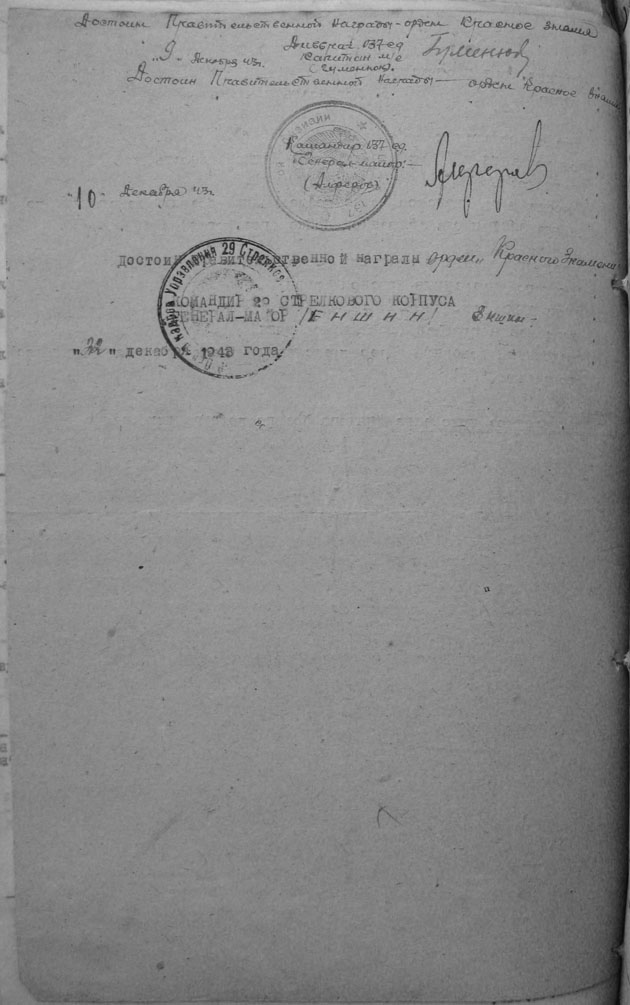 Достоин Правительственной Награды - орден Красное знамя
Дивврач 137 сд
"9" декабря 43г. капитан м/с
(Гуменюк).
Достоин Правительственной награды — орден Красное Знамя
Командир 137 сд
Генерал-майор: —
(Алферов)
"10" Декабря 43г.
достоин правительственной награды орден Красного Знамени
КОМАНДИР 29 СТРЕЛКОВОГО КОРПУСА
ГЕНЕРАЛ-МАЙОР /ЕНШИН/ Еншин
"22" декабря 1943 года.
Управления 29 Стрелков